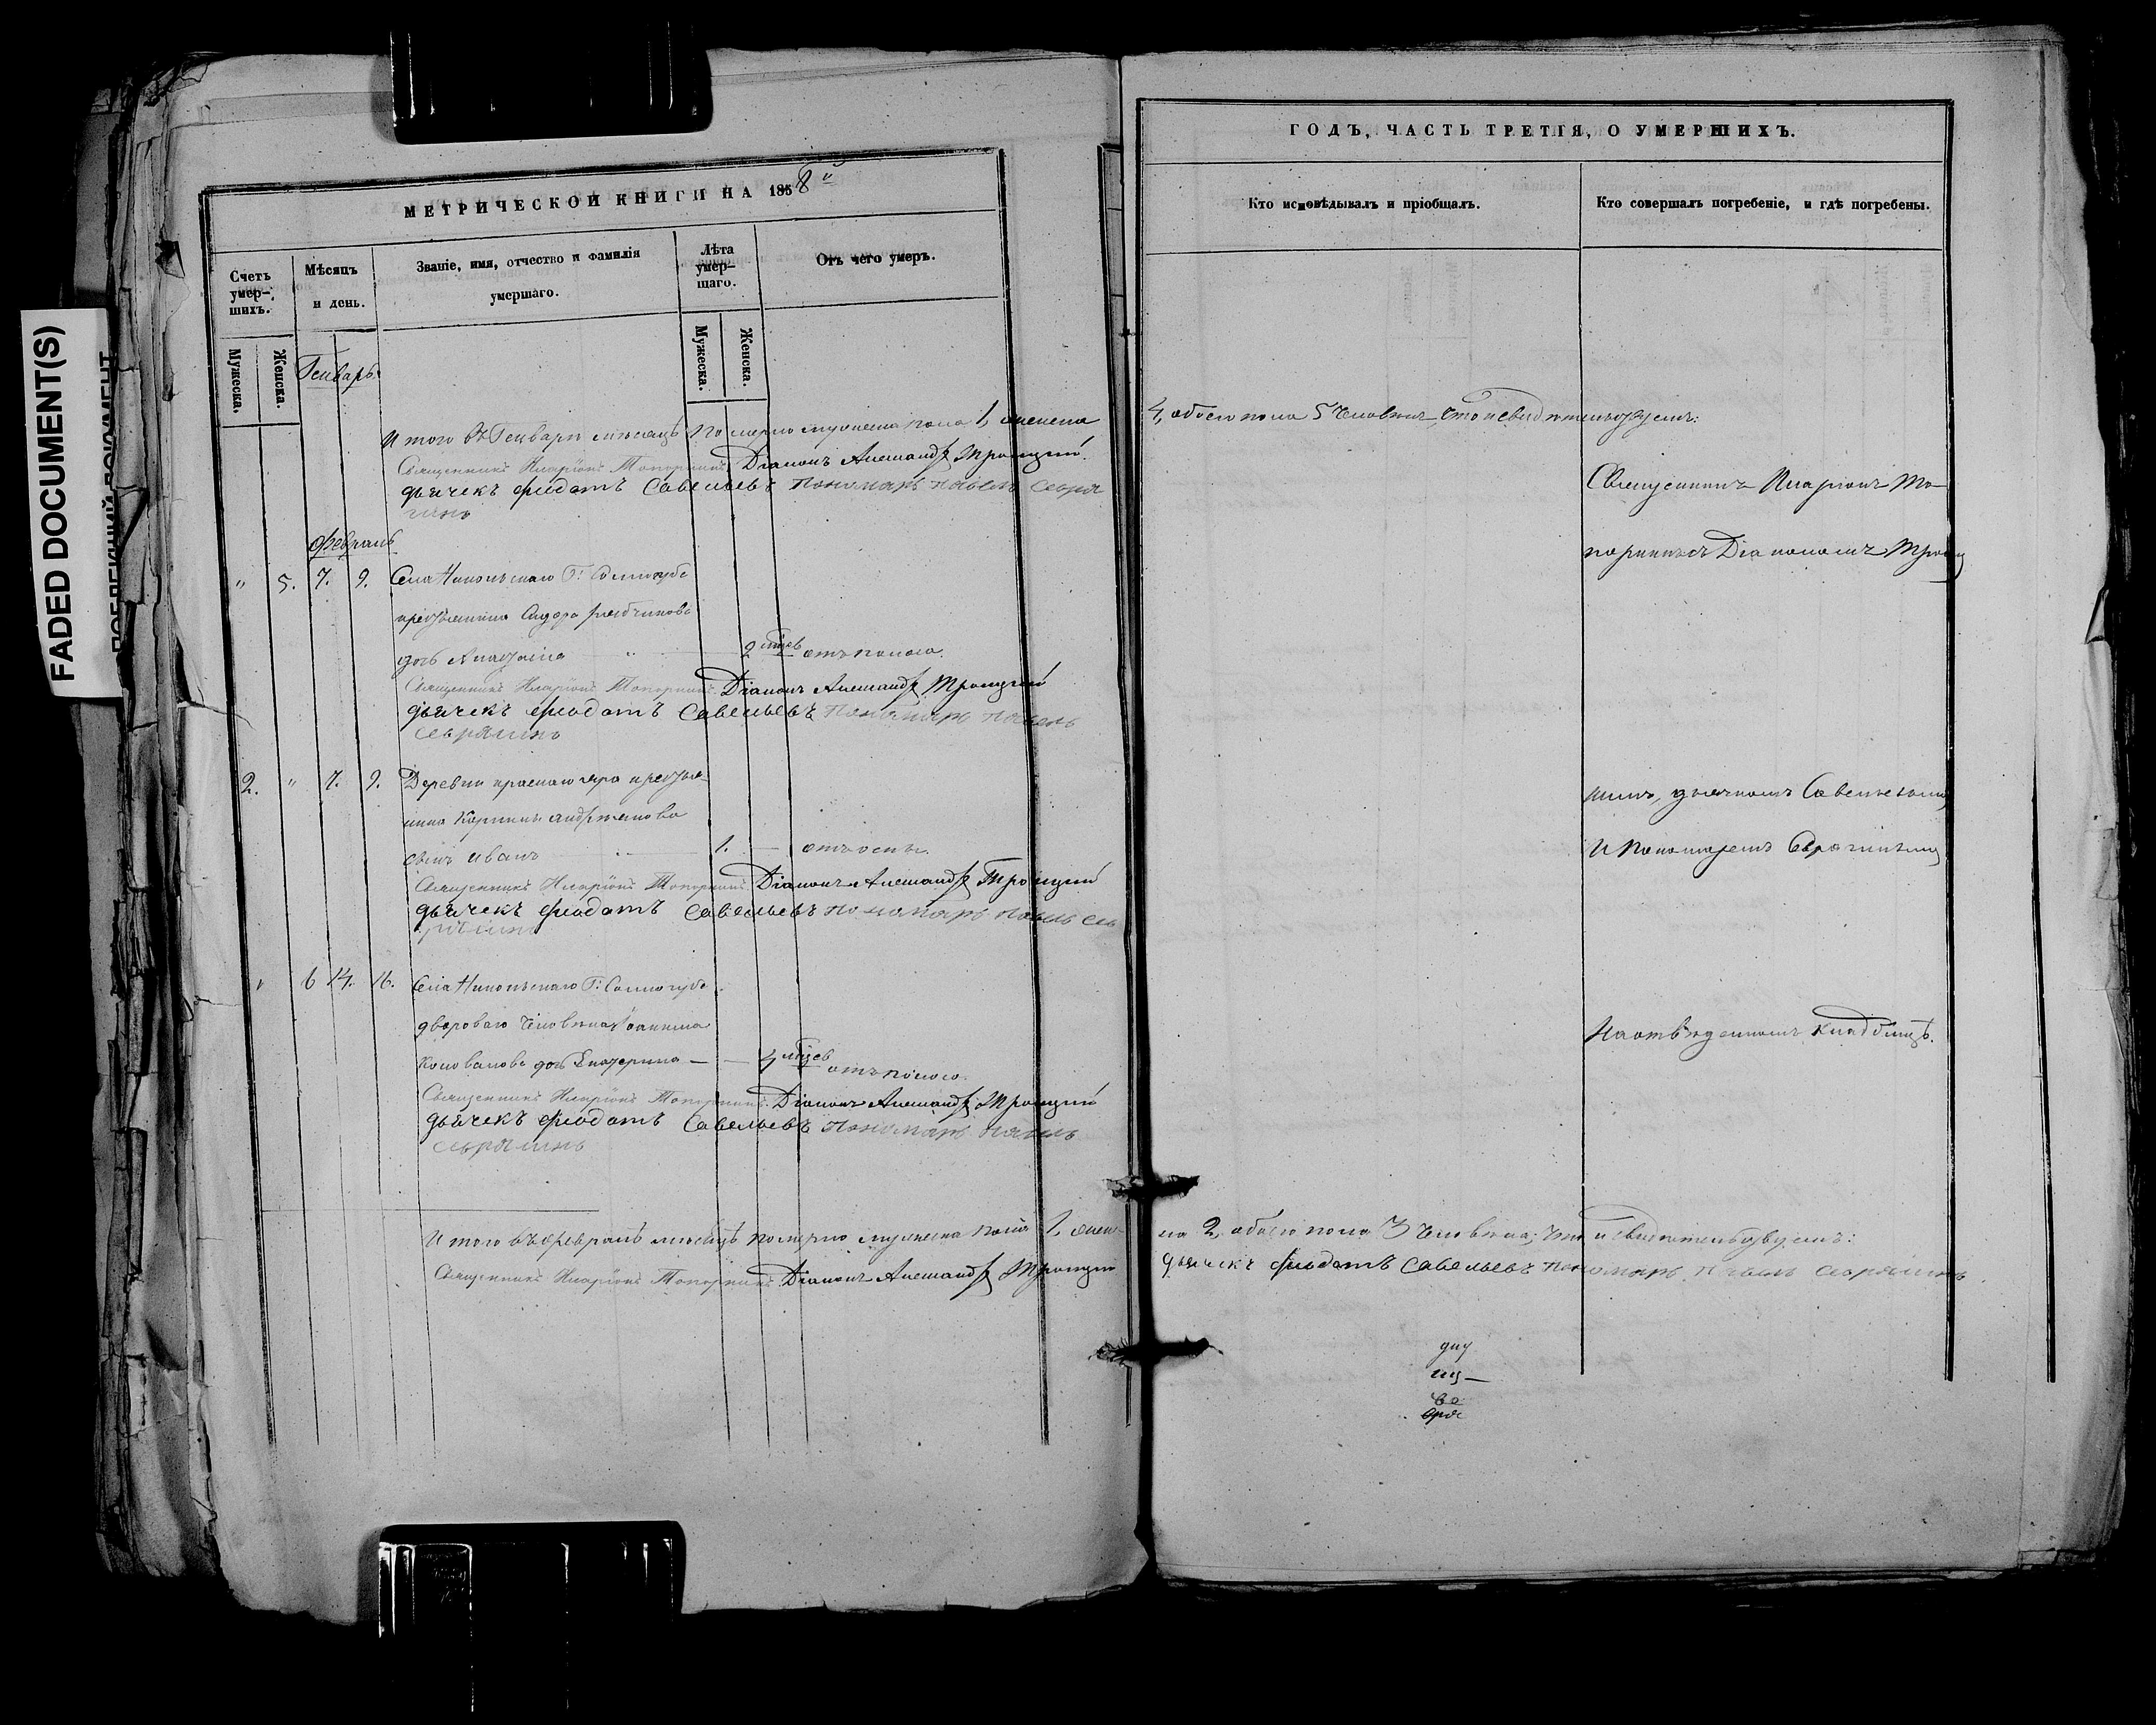 FADED DOCUMENT(S)
МЕТРИЧЕСКОЙ КНИГИ НА 1858й
Счетъ умер-
шихъ.
Мѣсяцъ
и день.
Званіе, имя, отчество и фамилія
умершаго.
Лѣта
умер-
шаго.
Отъ чего умеръ.
Мужеска.
Женска.
Мужеска.
Женска.
Генварь.
Итого въ Генварѣ мѣсяцѣ померло мужеска пола 1, женска
Священникъ Иларіонъ Топорнинъ Діаконъ Александръ Троицкій.
дьячекъ Феодотъ Савельевъ Пономарь Павелъ
Февраль
" 5. 7. 9. Села Никольскаго Г: Сологуба
крестьянина Сидора
дочь Анастасія " 2 мцев
Священникъ Иларіонъ Топорнинъ Діаконъ Александръ Троицкій
дьячекъ Феодотъ Савельевъ Пономарь Павелъ
2. " 7. 9. Деревни краснаго яра крестья-
нина
сынъ Иванъ " 1. — отъ оспы.
Священникъ Иларіонъ Топорнинъ Діаконъ Александръ Троицкій
дьячекъ Феодотъ Савельевъ Пономарь Павелъ
" 6 14. 16. Села Никольскаго Г: Сологуба
двороваго человѣка
Коновалова дочь Екатерина — — 4 мцев
Священникъ Иларіонъ Топорнинъ Діаконъ Александръ Троицкій
дьячекъ Феодотъ Савельевъ Пономарь Павелъ
Итого въ Февралѣ мѣсяцѣ померло мужеска пола 1, жен-
Священникъ Иларіонъ Топорнинъ Діаконъ Александръ Троицкій
ГОДЪ, ЧАСТЬ ТРЕТІЯ, О УМЕРШИХЪ.
Кто исповѣдывалъ и пріобщалъ.
Кто совершалъ погребеніе, и гдѣ погребены.
4, обоего пола 5 человѣкъ, что и свидѣтельствуемъ:
Священникъ Иларіонъ То-
порнинъ съ Діакономъ Троиц
кимъ, дьячкомъ Савельевымъ
и Пономаремъ
На отведенномъ кладбищѣ.
ка 2, обоего пола 3 человѣка, что и свидѣтельствуемъ:
дьячекъ Феодотъ Савельевъ Пономарь Павелъ